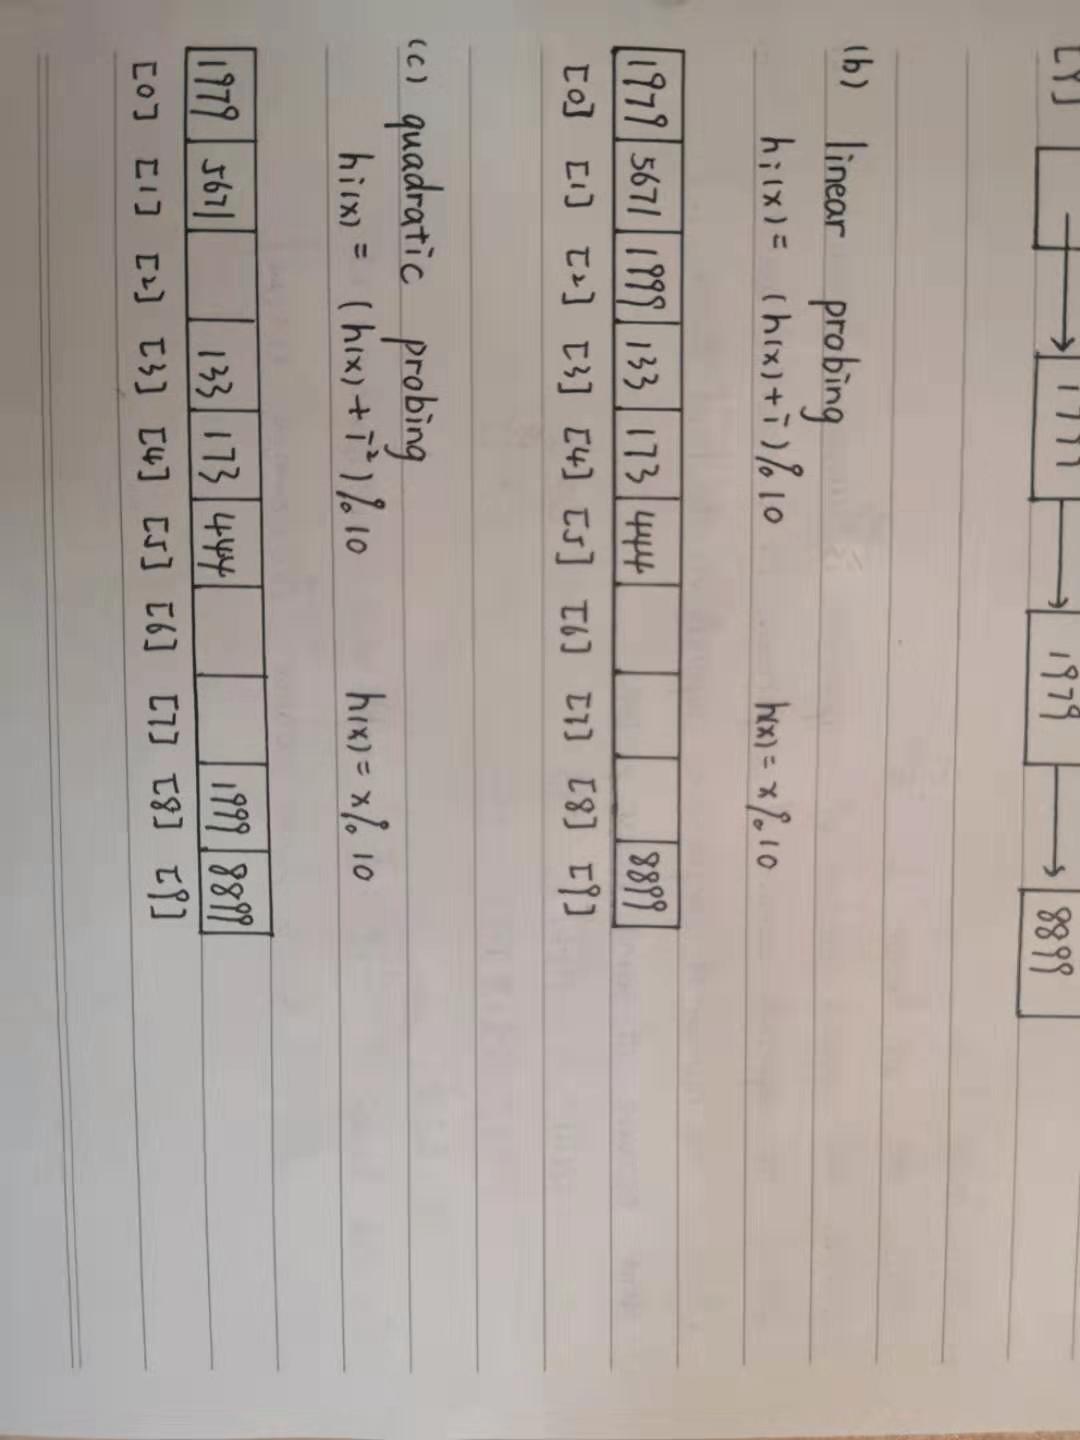 [9] 1999 1979 8899
(b) linear probing
hi(x) = (h(x) + i) % 10 h(x) = x % 10
1979 5671 1999 133 173 444 8899
[0] [1] [2] [3] [4] [5] [6] [7] [8] [9]
(c) quadratic probing
hi(x) = (h(x) + i²) % 10 h(x) = x % 10
1979 5671 133 173 444 1999 8899
[0] [1] [2] [3] [4] [5] [6] [7] [8] [9]